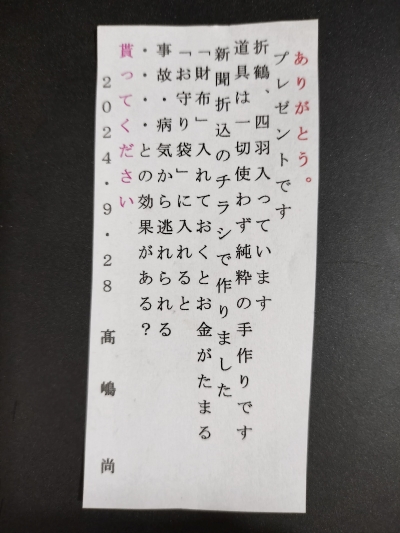 ありがとう。
プレゼントです
折鶴、四羽入っています
道具は一切使わず純粋の手作りです
新聞折込のチラシで作りました
「財布」入れておくとお金がたまる
「お守り袋」に入れると
事故・病気から逃れられる
・・・・との効果がある？
貰ってください
２０２４・９・２８　髙嶋尚